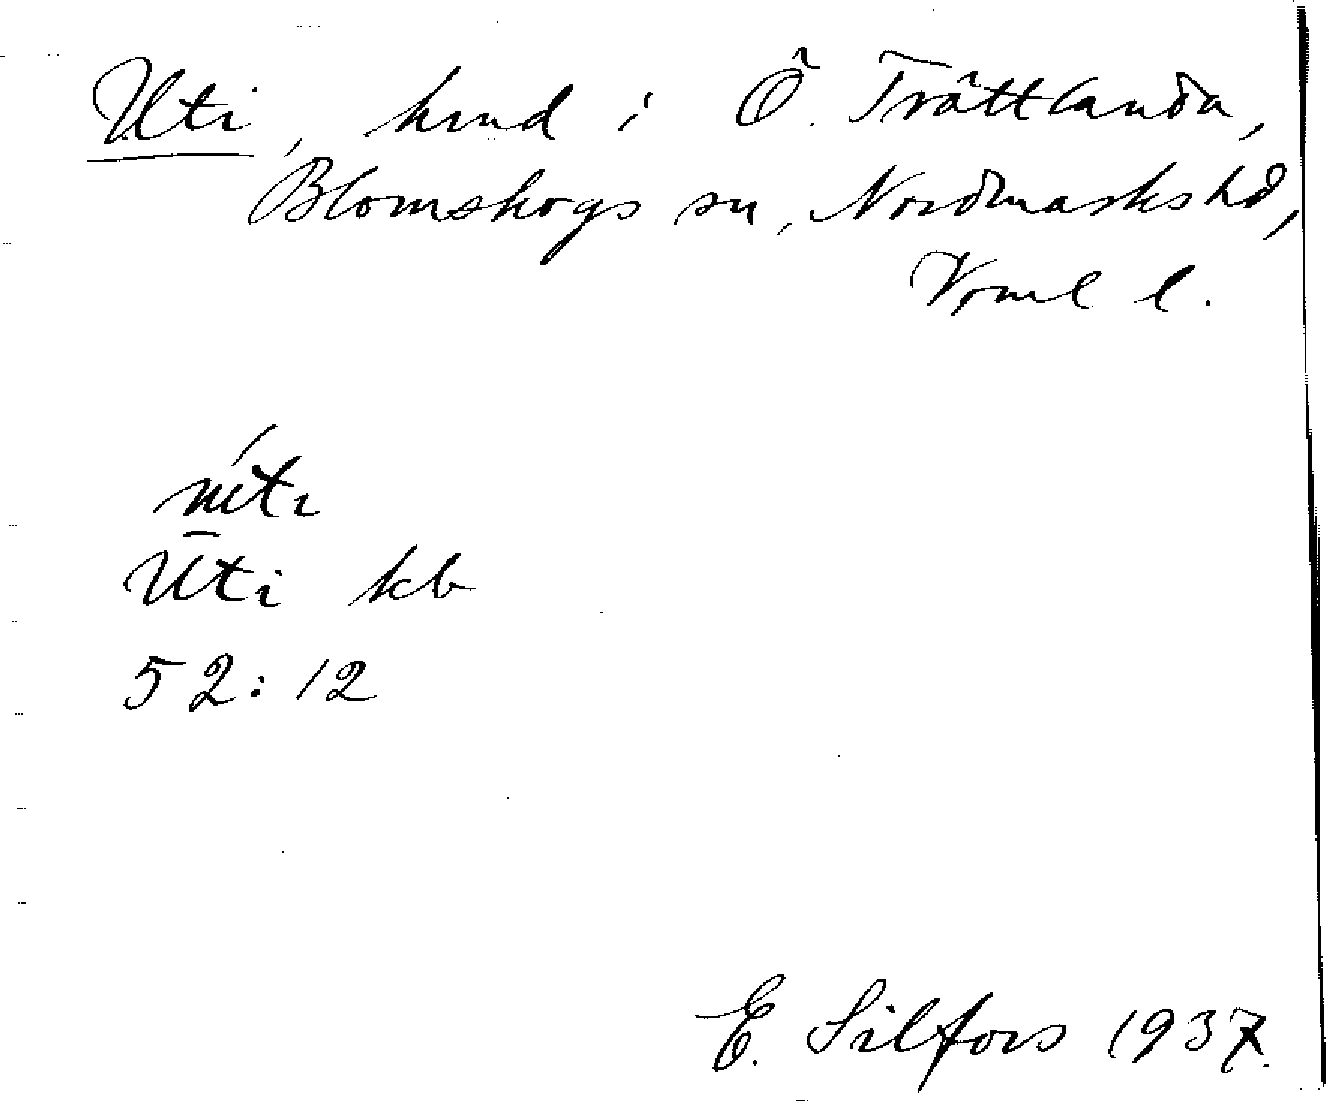 Uti, hmd i Ö. Trättlanda,
Blomskogs sn, Nordmarks hd,
Vrml l.
Uti kb
52:12
E. Silfors 1937.